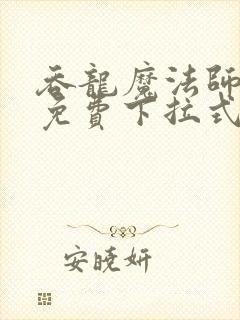 吞龍魔法師
免費下拉式
安曉妍